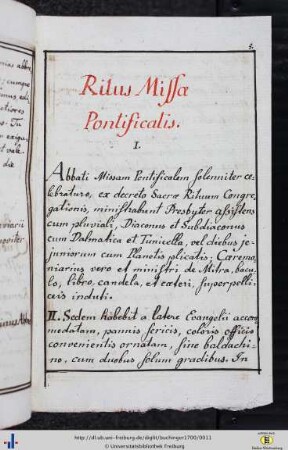 5.
Ritus Missæ
Pontificalis.
I.
Abbati Missam Pontificalem solenniter ce-
lebraturo, ex decreto Sacræ Rituum Congre-
gationis, ministrabunt Presbyter assistens
cum pluviali, Diaconus et Subdiaconus
cum Dalmatica et Tunicella, vel diebus je-
juniorum cum Planetis plicatis: Caremo-
niarius vero et ministri de Mitra, bacu-
lo, libro, candela, et cæteri, superpelli-
ceis induti.
II. Sedem habebit a latere Evangelii accom-
modatam, pannis sericis, coloris officio
convenientis ornatam, sine baldachi-
no, cum duobus solum gradibus. In
http://dl.ub.uni-freiburg.de/diglit/buchinger1700/0011
© Universitätsbibliothek Freiburg